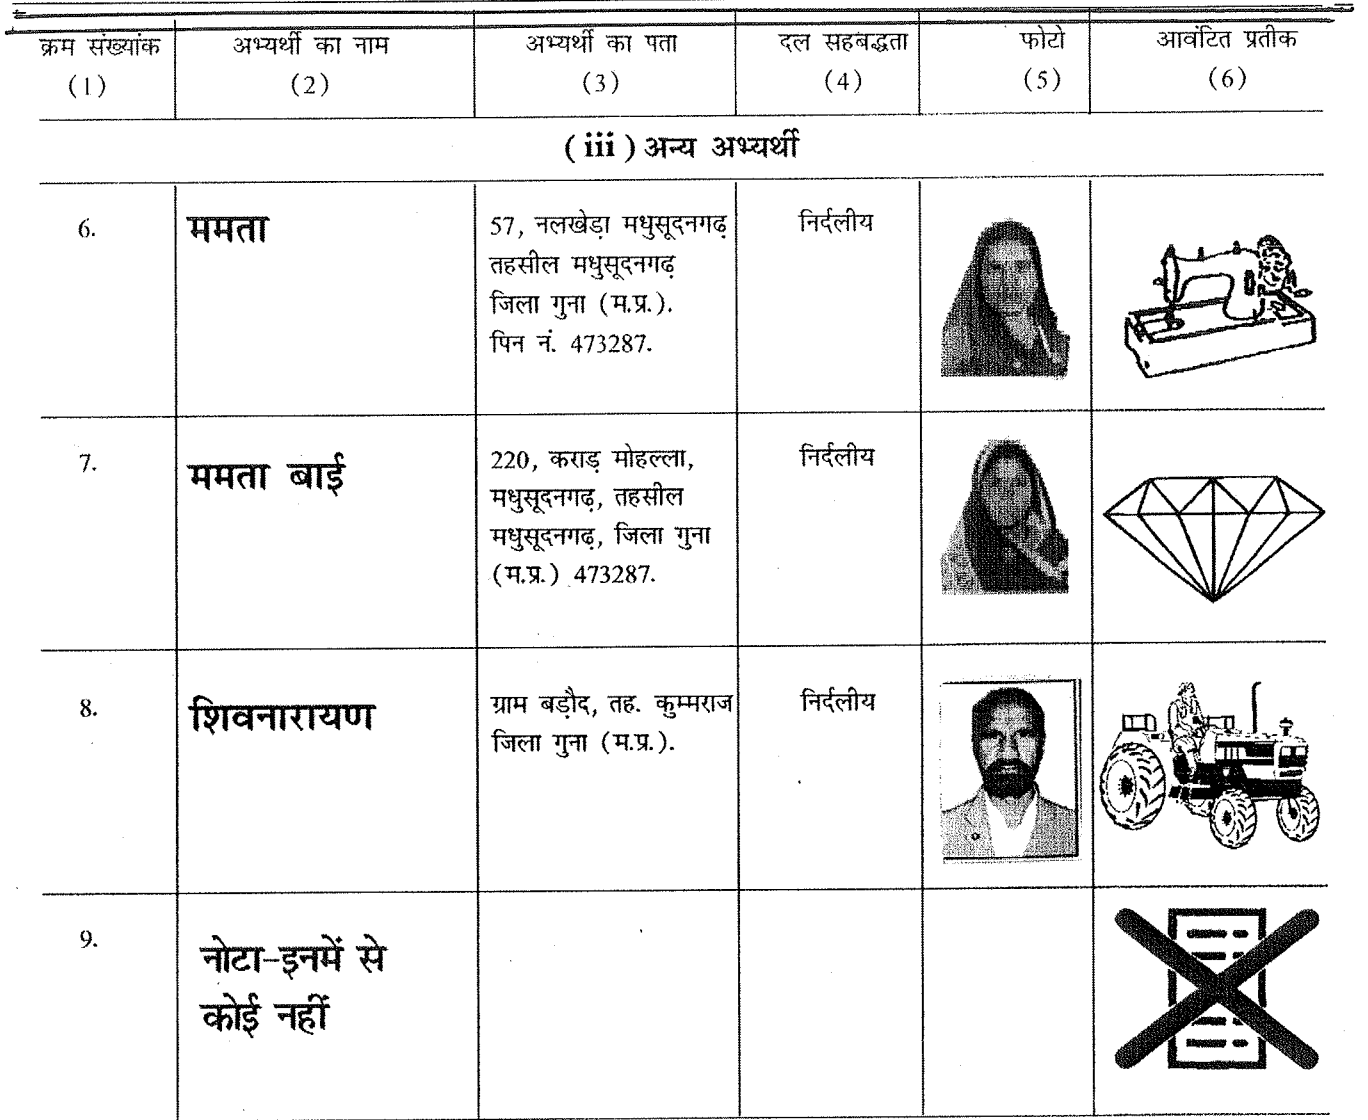 क्रम संख्यांक अभ्यर्थी का नाम अभ्यर्थी का पता दल सहबद्धता फोटो आवंटित प्रतीक
(1) (2) (3) (4) (5) (6)
(iii) अन्य अभ्यर्थी
6. ममता 57, नलखेड़ा मधुसूदनगढ़ निर्दलीय
तहसील मधुसूदनगढ़
जिला गुना (म.प्र.).
पिन नं. 473287.
7. ममता बाई 220, कराड़ मोहल्ला, निर्दलीय
मधुसूदनगढ़, तहसील
मधुसूदनगढ़, जिला गुना
(म.प्र.) 473287.
8. शिवनारायण ग्राम बड़ौद, तह. कुम्मराज निर्दलीय
जिला गुना (म.प्र.).
9. नोटा-इनमें से
कोई नहीं